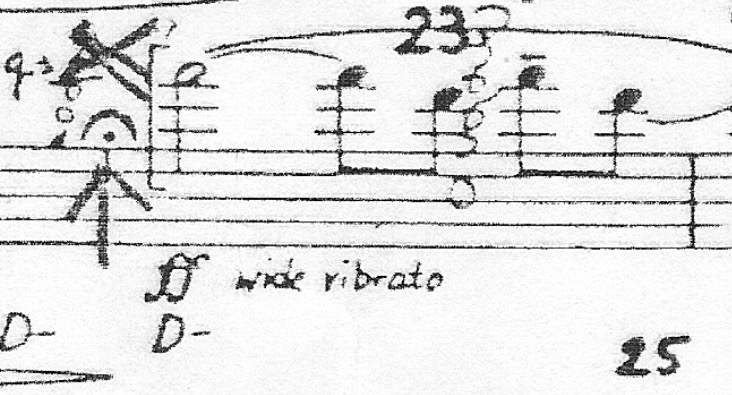 23
ff wide vibrato
D- D-
25